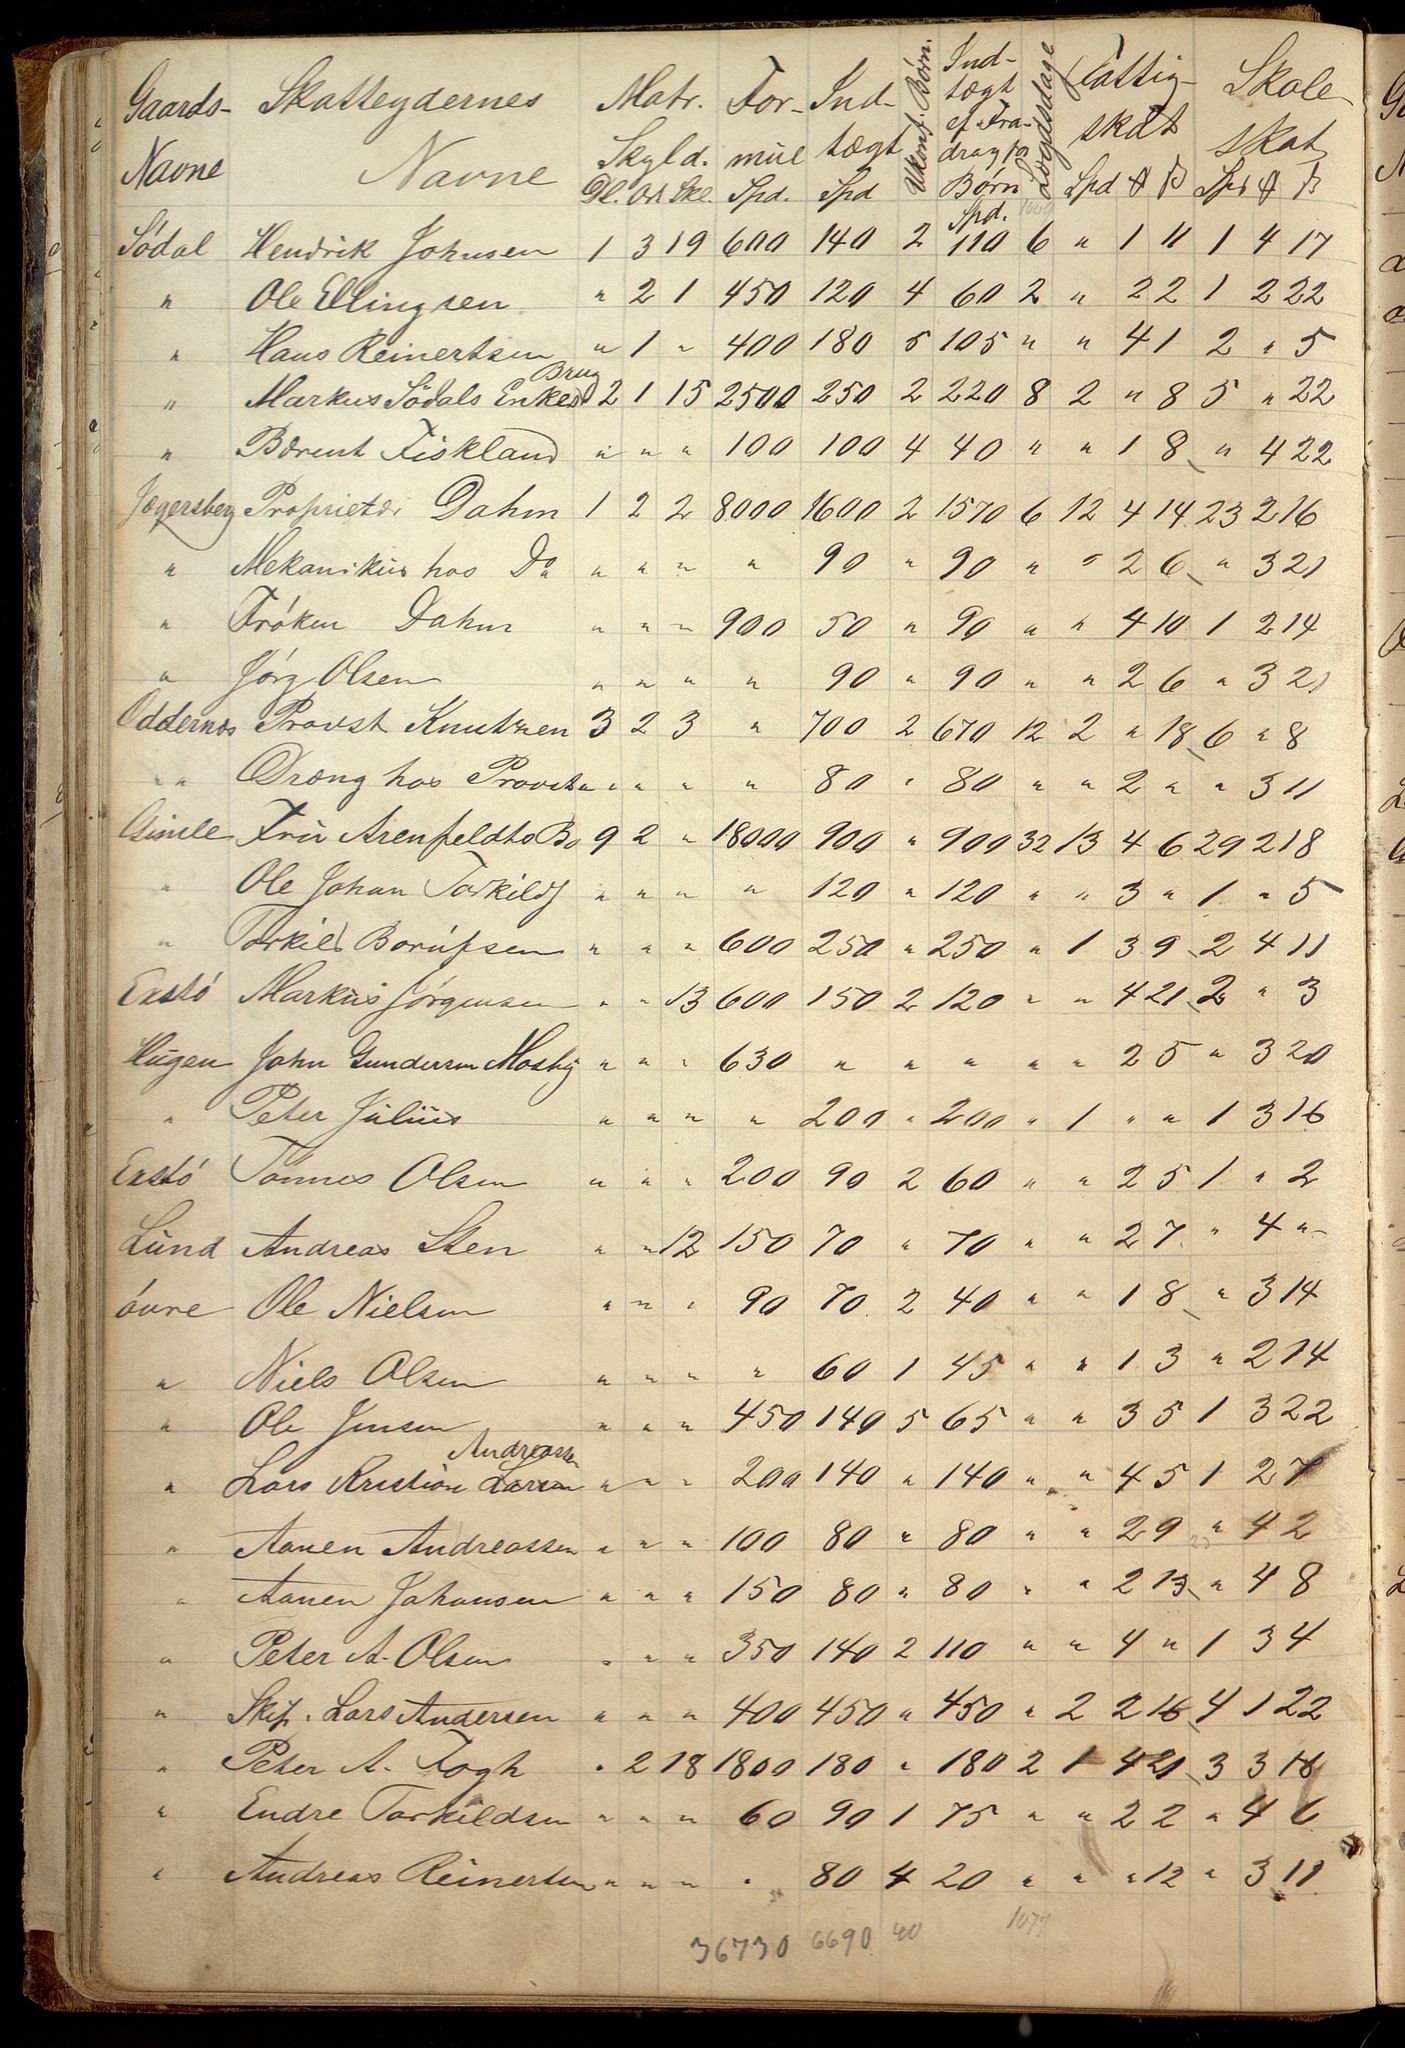 Gaards- Skatteydernes Matr. For- Ind- Ukonf. Børn. Ind- Lægdsdage Fattig- Skole
Navne Navne Skyld. mue tægt tægt skat skat
ef. Fra-
drag for
Dl. Ort Skl. Spd. Spd Børn Spd. Spd
Södal Hendrik Johnsen 1 3 19 600 140 2 110 6 " 1 11 1 4 17
" Ole Ellingsen " 2 1 450 120 4 60 2 " 2 2 1 2 22
" Hans Reinertsen " 1 " 400 180 5 105 " " 4 1 2 " 5
" Markus Södals Enkes Brug 2 1 15 2500 250 2 220 8 2 " 8 5 " 22
" Bærent Fiskland " " " 100 100 4 40 " " 1 8 " 4 22
Jægersberg Proprietær Dahm 1 2 2 8000 1600 2 1570 6 12 4 14 23 2 16
" Mekanikus hos Do " " " " 90 " 90 " " 2 6 " 3 21
" Fröken Dahm " " " 900 50 " 90 " " 4 10 1 2 14
" Jörg Olsen " " " " 90 " 90 " " 2 6 " 3 21
Oddernæs Provst Knutzen 3 2 3 " 700 2 670 12 2 " 18 6 " 8
" " Dræng hos Provsten " " " " 80 " 80 " " 2 " " 3 11
Gimle Fru Arenfeldts Bo 9 2 " 18000 900 " 900 32 13 4 6 29 2 18
" Ole Johan Torkilds " " " " 120 " 120 " " 3 " 1 " 5
" Torkild Borufsen " " " 600 250 " 250 " 1 3 9 2 4 11
Exstö Markus Jörgensen " " 13 600 150 2 120 " " 4 21 2 " 3
Hugen John Gundersen Mosby " " " 630 " " " " " 2 5 " 3 20
" Peter Julius " " " " 200 " 200 " 1 " " 1 3 16
Exstö Tönnes Olsen " " " 200 90 2 60 " " 2 5 1 " 2
Lund Andreas Sten " " 12 150 70 " 70 " " 2 7 " 4 "
övre Ole Nielsen " " " 90 70 2 40 " " 1 8 " 3 14
" Niels Olsen " " " " 60 1 45 " " 1 3 " 2 14
" Ole Jensen " " " 450 140 5 65 " " 3 5 1 3 22
Andreassen
" Lars Kristian Larsen " " " 200 140 " 140 " " 4 5 1 2 7
" Aanen Andreassen " " " 100 80 " 80 " " 2 9 " 4 2
" Aanen Johansen " " " 150 80 " 80 " " 2 13 " 4 8
" Peter A. Olsen " " " 350 140 2 110 " " 4 " 1 3 4
" Skip. Lars Andersen " " " 400 450 " 450 " 2 2 16 4 1 22
" Peter A. Fogh " 2 18 1800 180 " 180 2 1 4 21 3 3 18
" Endre Torkildsen " " " 60 90 1 75 " " 2 2 " 4 6
" Andreas Reinertsen " " " " 80 4 20 " " " 12 " 3 11
36730 6690 40 1077